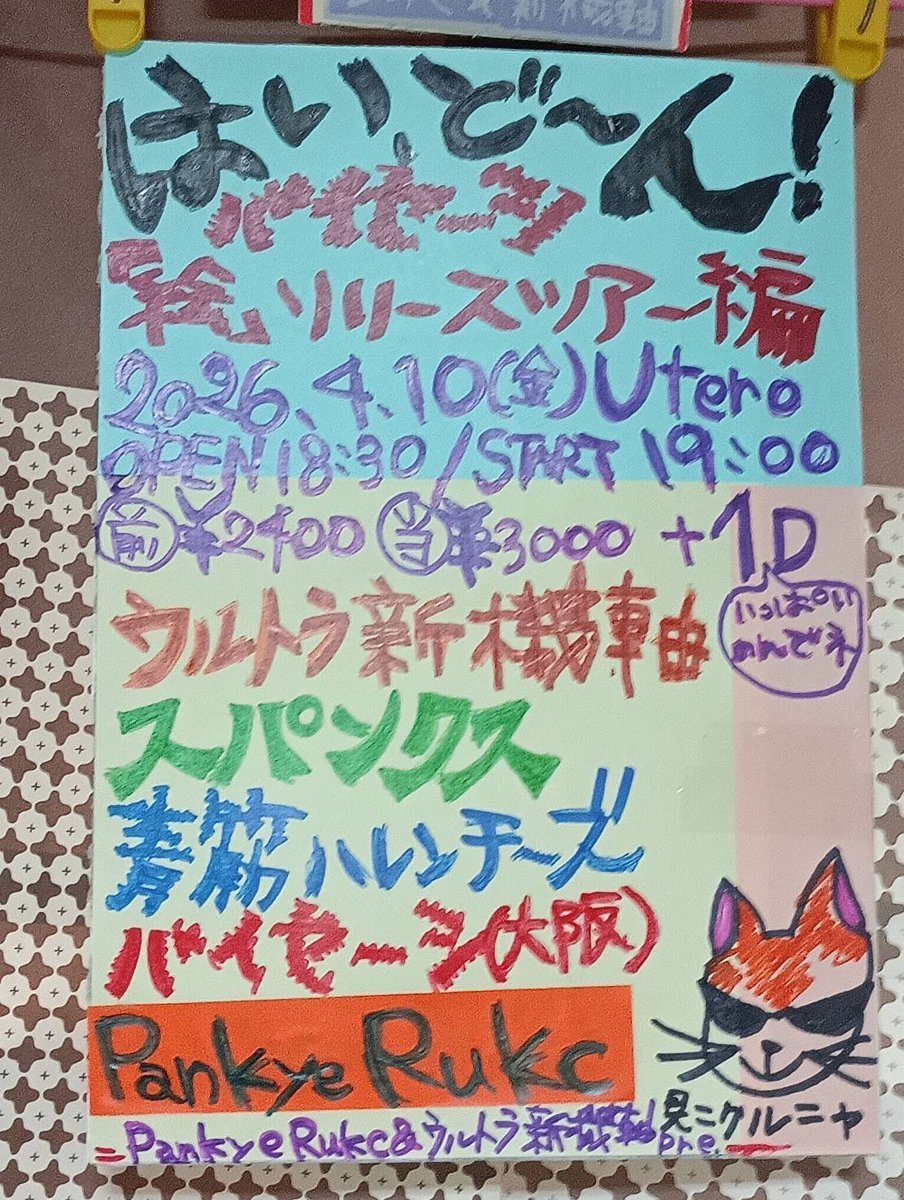 新機軸
はい、ど〜ん!
バイセーシ
「絵」リリースツアー編
2026.4.10(金)Utero
OPEN 18:30/START 19:00
前¥2400 当¥3000 +1D
いっぱい
のんでネ
ウルトラ新機軸
スパンクス
青筋ハレンチーズ
バイセーシ(大阪)
Pankye Rukc
見ニクルニャ
=Pankye Rukc&ウルトラ新機軸 pre.=